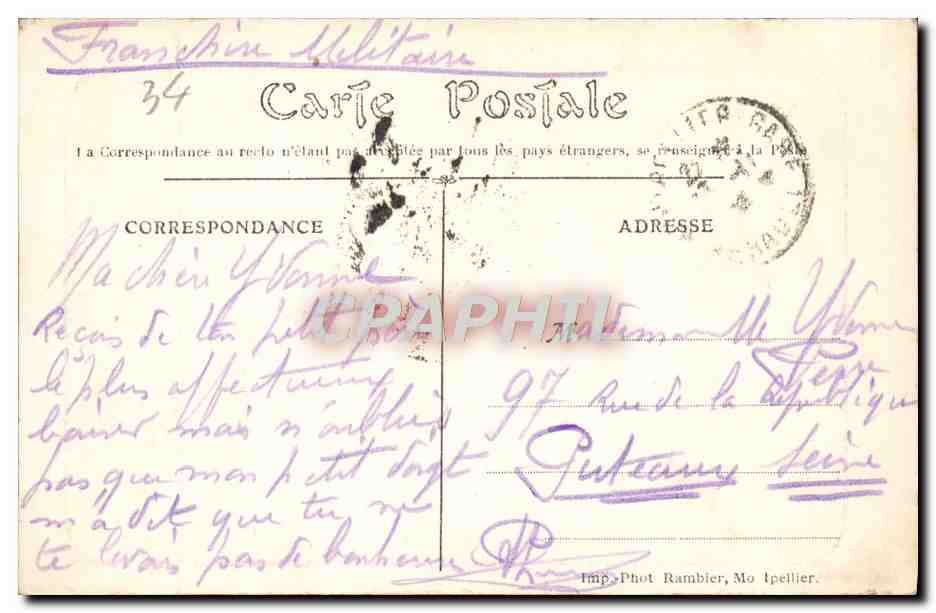 Franchise Militaire
34
Carte Postale
La Correspondance au recto n'étant pas acceptée par tous les pays étrangers, se renseigner à la Poste
CORRESPONDANCE
Ma chère Yvonne
Reçois de ton petit
le plus affectueux
baiser mais n'oublie
pas que mon petit doigt
m'a dit que tu ne
te lavais pas de bonne heure
CPAPHIL
ADRESSE
Mademoiselle Yvonne
97 Rue de la République
Puteaux Seine
Imp.-Phot Rambier, Mo tpellier.
GARE